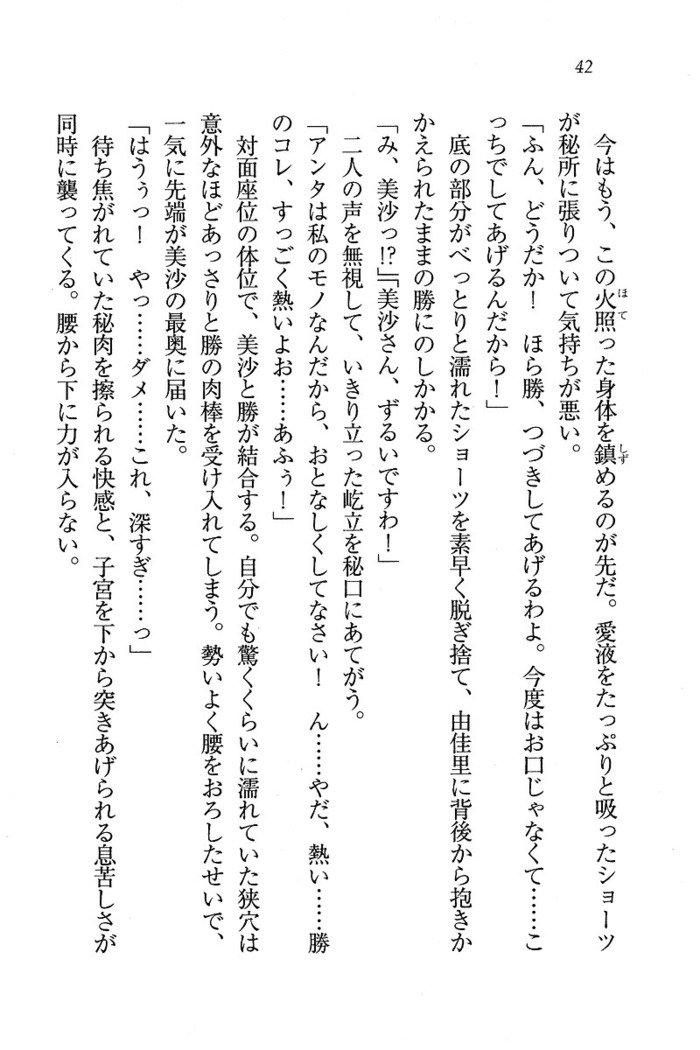 42
今はもう、この火照った身体を鎮めるのが先だ。愛液をたっぷりと吸ったショーツ
が秘所に張りついて気持ちが悪い。
「ふん、どうだか！　ほら勝、つづきしてあげるわよ。今度はお口じゃなくて……こ
っちでしてあげるんだから！」
底の部分がべっとりと濡れたショーツを素早く脱ぎ捨て、由佳里に背後から抱きか
かえられたままの勝にのしかかる。
「み、美沙っ!?」「美沙さん、ずるいですわ！」
二人の声を無視して、いきり立った屹立を秘口にあてがう。
「アンタは私のモノなんだから、おとなしくしてなさい！　ん……やだ、熱い……勝
のコレ、すっごく熱いよお……あふぅ！」
対面座位の体位で、美沙と勝が結合する。自分でも驚くくらいに濡れていた狭穴は
意外なほどあっさりと勝の肉棒を受け入れてしまう。勢いよく腰をおろしたせいで、
一気に先端が美沙の最奥に届いた。
「はうぅっ！　やっ……ダメ……これ、深すぎ……っ」
待ち焦がれていた秘肉を擦られる快感と、子宮を下から突きあげられる息苦しさが
同時に襲ってくる。腰から下に力が入らない。